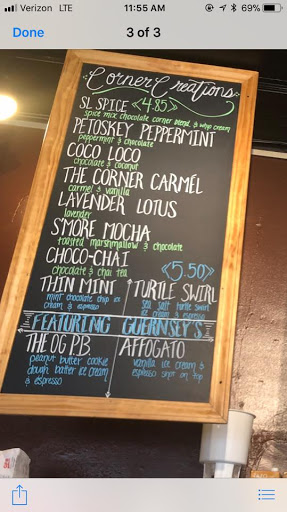 Verizon LTE 11:55 AM 69%
Done 3 of 3
Corner Creations
SL SPICE <4.85>
spice mix chocolate corner blend & whip cream
PETOSKEY PEPPERMINT
peppermint & chocolate
COCO LOCO
chocolate & coconut
THE CORNER CARMÉL
carmel & vanilla
LAVENDER LOTUS
lavender
S'MORE MOCHA
toasted marshmallow & chocolate
CHOCO-CHAI
chocolate & chai tea
<<5.50>>
THIN MINT
mint chocolate chip ice
cream & espresso
TURTLE SWIRL
sea salt turtle swirl
ice cream & espresso
FEATURING GUERNSEY'S
THE OG PB
peanut butter cookie
dough batter ice cream
& espresso
AFFOGATO
vanilla ice cream &
espresso shot on top